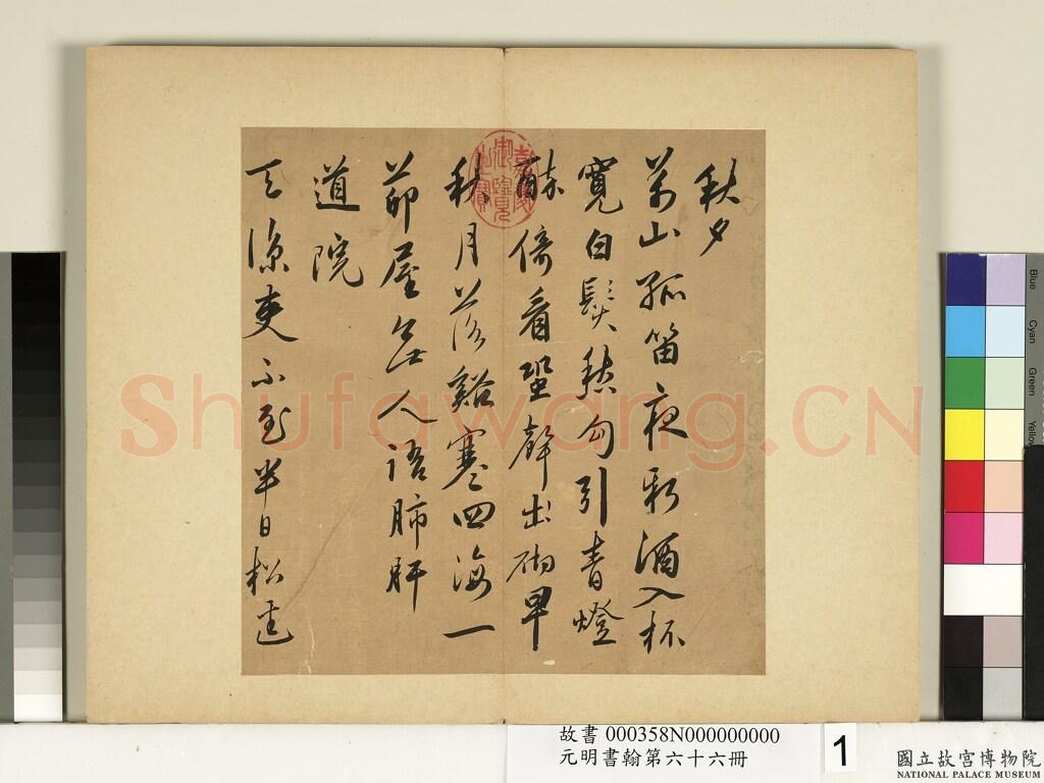 秋夕
万山孤笛夜新酒入杯
寬白鬚愁勿引青燈
酔倚看蛩聲出砌早
秋月落谿寒四海一
茆屋無人語肺肝
道院
天涼吏不至半日松
Shufawang.CN
故書 000358N000000000
元明書翰第六十六冊
1
國立故宮博物院
NATIONAL PALACE MUSEUM
Blue
Cyan
Green
Yellow